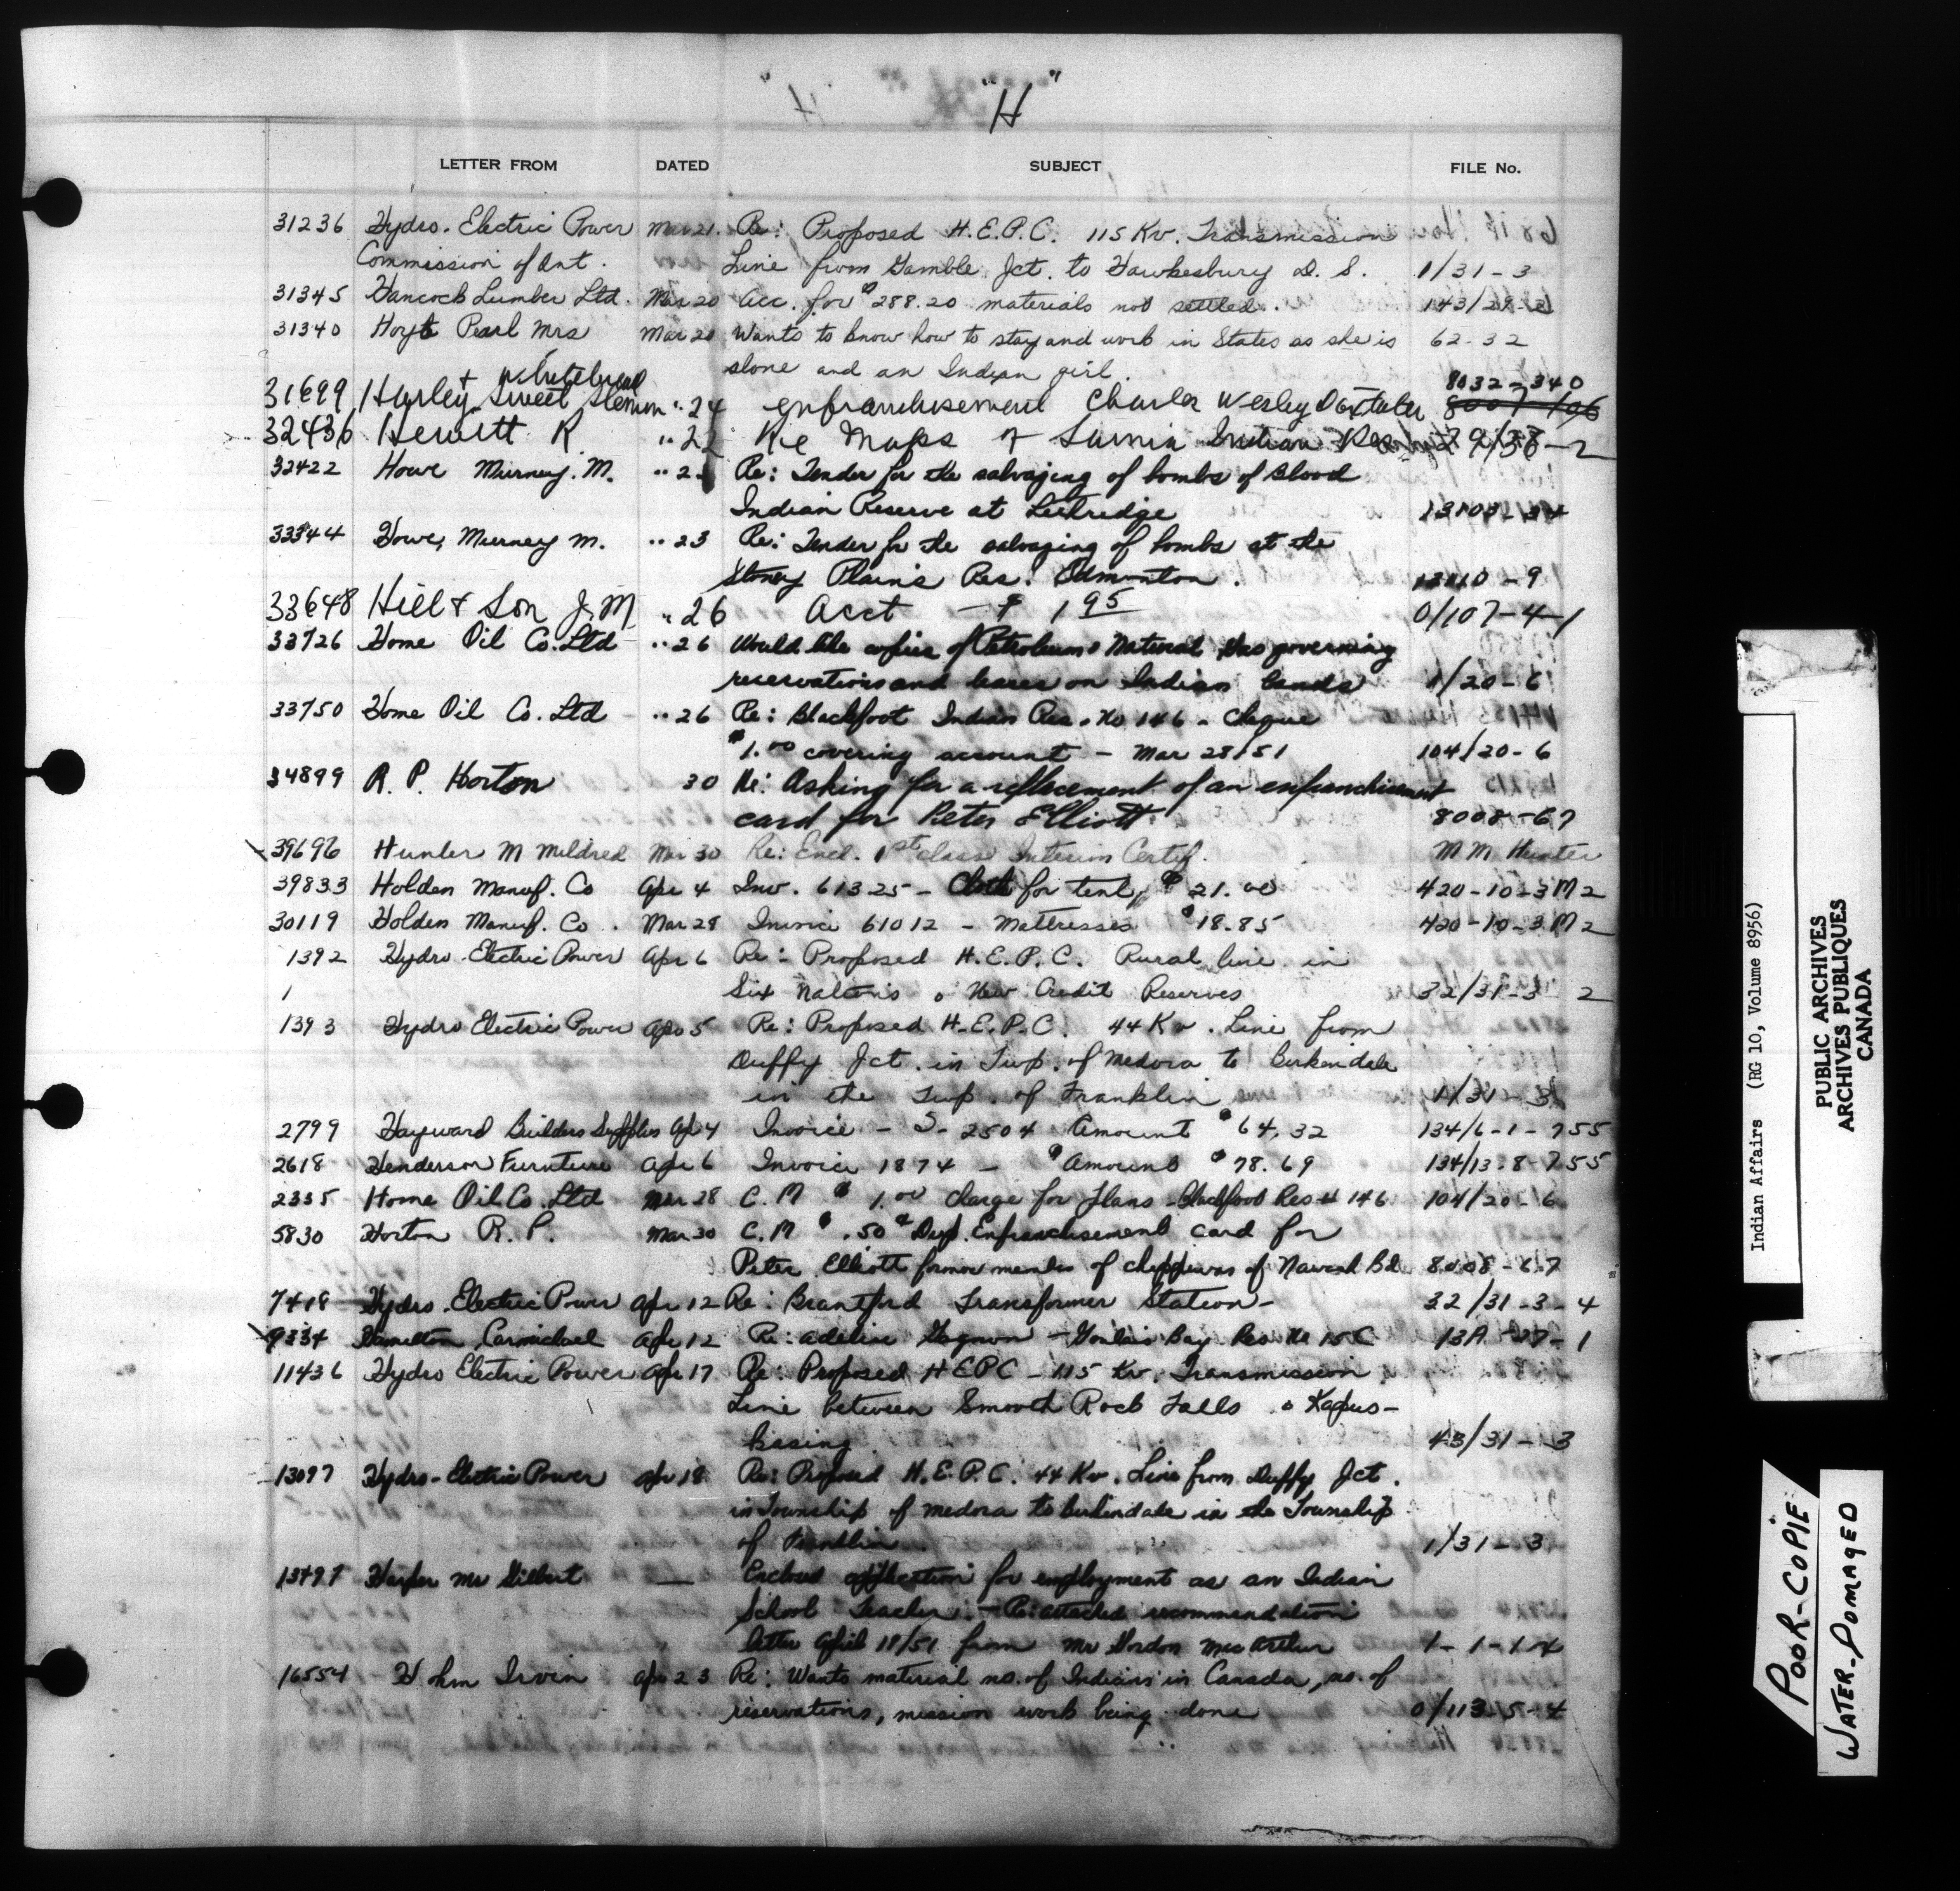 "H"
LETTER FROM DATED SUBJECT FILE No.
31236 Hydro-Electric Power Mar 21. Re: Proposed H.E.P.C. 115 Kv. Transmission
Commission of Ont. Line from Gamble Jct. to Hawkesbury D.S. 1/31-3
31345 Hancock Lumber Ltd. Mar 20 Acc. for $288.20 materials not settled. 143/29-2
31340 Hoyt Pearl Mrs Mar 20 Wants to know how to stay and work in States as she is 62-32
alone and an Indian girl.
8032-340
31699 Hurley, Sweet " 24 enfranchisement Charles Wesley 8007
32436 Hewitt R " 22 Re Maps of Sarnia Indian Res
32422 Howe Murney. M. " Re: Tender for the salvaging of bombs of Blood
Indian Reserve at 13103-34
33344 Howe, Murney M. " 23 Re: Tender for the salvaging of bombs at the
Stoney Plains Res. Edmonton. -9
33648 Hill & Son J.M " 26 Acct - $ 1 95 0/107-4-1
33726 Home Oil Co. Ltd " 26 Would like copies of Petroleum & Natural Gas governing
reservations and leases on Indian lands 1/20-6
33750 Home Oil Co. Ltd " 26 Re: Blackfoot Indian Res. No 146 - Cheque
$1.00 covering account - Mar 28/51 104/20-6
34899 R. P. Horton 30 Re: Asking for a replacement of an enfranchisement
card for Peter Elliott 8008-67
39696 Hunter M Mildred Mar 30 Re: Encl. 1st class Interim Certif. M M Hunter
39833 Holden Manuf. Co Apr 4 Inv. 61325 - Cloth for tent, $ 21.00 420-10-3 M2
30119 Holden Manuf. Co. Mar 28 Invoice 61012 - Mattresses $18.85 420-10-3 M2
1392 Hydro-Electric Power Apr 6 Re: Proposed H.E.P.C. Rural line in
1 Six Nations & New Credit Reserves 32/31-3 2
1393 Hydro Electric Power Apr 5 Re: Proposed H.E.P.C. 44 Kv. Line from
Duffy Jct. in Twp. of Medora to Birkendale
in the Twp. of Franklin 1/31-3
2799 Hayward Builders Supplies Apr 4 Invoice - S- 2504 Amount $64.32 134/6-1-755
2618 Henderson Furniture Apr 6 Invoice 1874 - Amount $78.69 134/13-8-755
2335 Home Oil Co. Ltd Mar 28 C.M $ 1.00 charge for Plans Blackfoot Res # 146 104/20-6
5830 Horton R. P. Mar 30 C.M $ .50 Dup. Enfranchisement card for
Peter Elliott former member of Chippewas of Nawash Bd. 8008-67
7418 Hydro-Electric Power Apr 12 Re: Brantford Transformer Station- 32/31-3-4
9334 Hamilton Carmichael Apr 12 Re: Adeline Gagnon - Goulais Bay Res No 15C 13A-37-1
11436 Hydro Electric Power Apr 17 Re: Proposed HEPC - 115 Kv. Transmission
Line between Smooth Rock Falls & Kapus-
kasing 43/31-3
13097 Hydro-Electric Power Apr 18 Re: Proposed H.E.P.C. 44 Kv. Line from Duffy Jct.
in Township of Medora to Birkendale in the Township
of Franklin 1/31-3
13497 Harper Mr Gilbert — Enclosed application for employment as an Indian
School Teacher. - Re: attached recommendation
letter April 18/51 from Mr Gordon MacArthur 1-1-1-4
16554 Hohm Irvin Apr 23 Re: Wants material no. of Indians in Canada, no. of
reservations, mission work being done 0/113-5-4
Indian Affairs (RG 10, Volume 8956)
PUBLIC ARCHIVES
ARCHIVES PUBLIQUES
CANADA
POOR-COPIE
WATER-DOMAGED